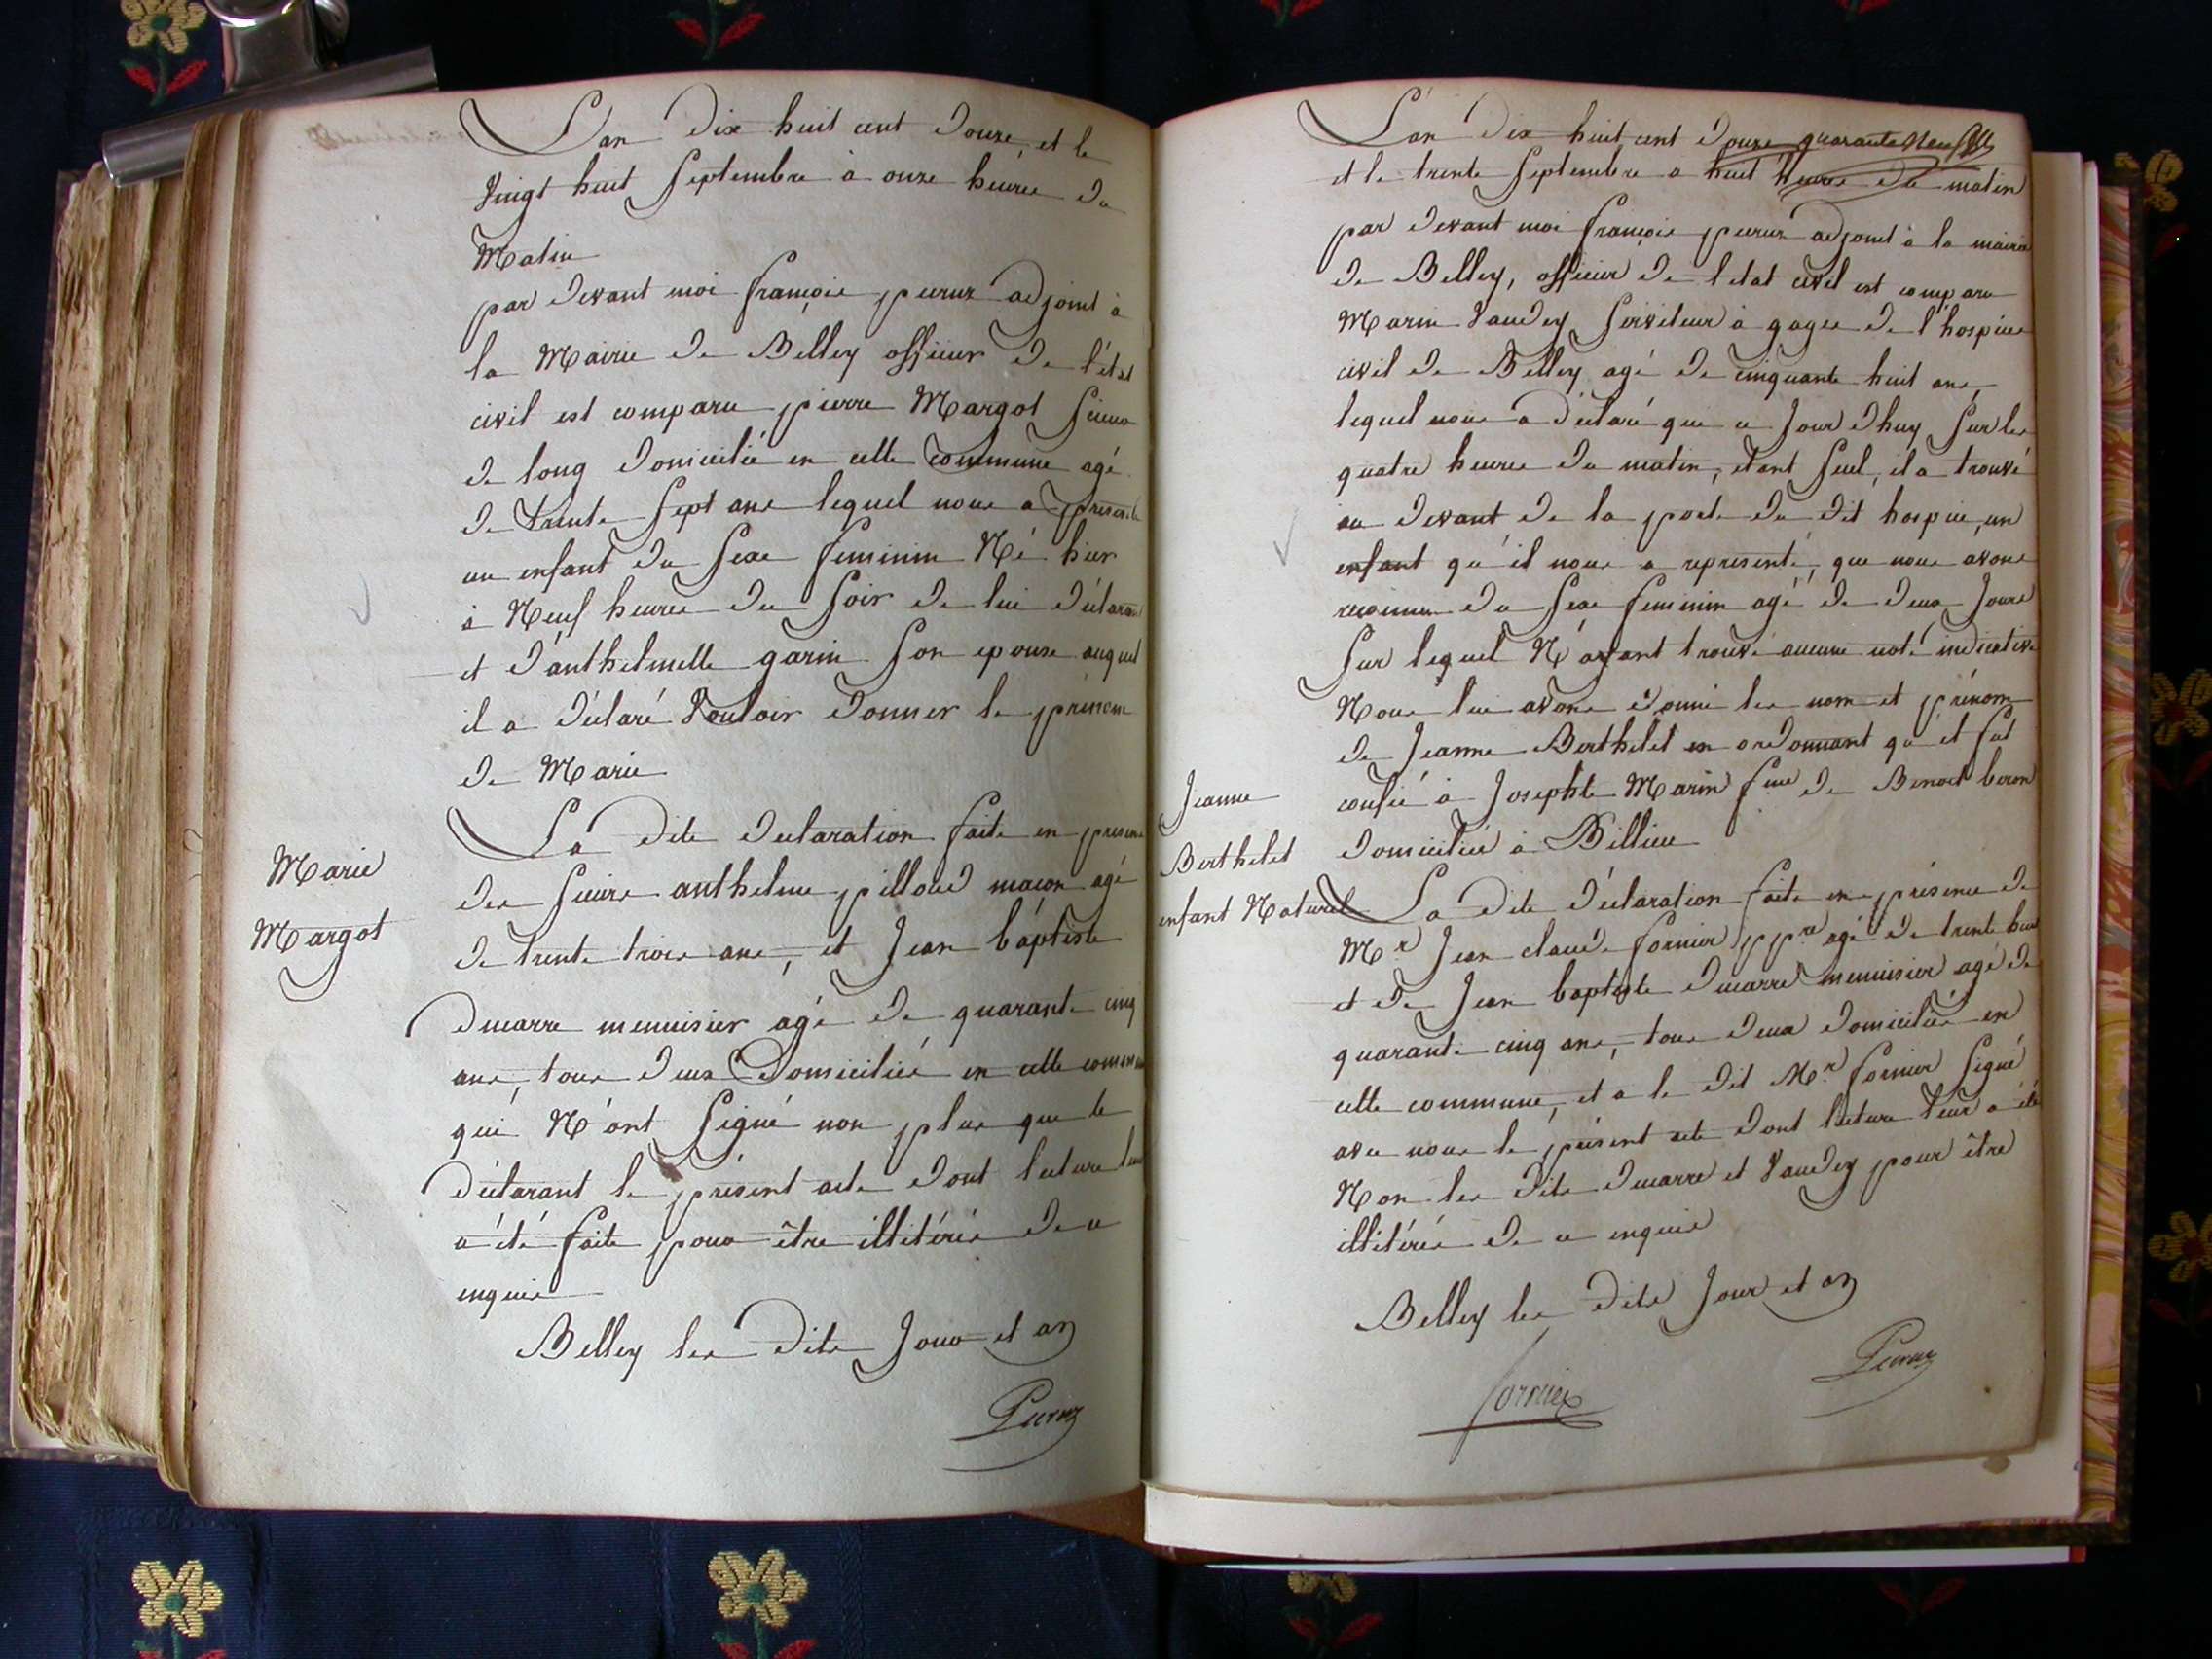 L'an dix huit cent douze, et le
Vingt huit Septembre à onze heures du
Matin
par devant moi françois peeruz adjoint à
la Mairie de Belley officier de l'état
civil est comparu pierre Margot Scieur
de long domicilié en cette commune agé
de trente Sept ans lequel nous a présenté
un enfant du Sexe feminin Né hier
à Neuf heures du Soir de lui déclarant
et d'anthelmette garin Son epouse auquel
il a déclaré Vouloir donner le prénom
de Marie
La dite declaration faite en presence
des Sieurs anthelme pilloud maçon agé
de trente trois ans, et Jean baptiste
Ducarre menuisier agé de quarante cinq
ans, tous deux Domiciliés en cette commune
qui N'ont Signé non plus que le
déclarant le présent acte dont lecture leur
a été faite pour être illitérés de ce
enquis
Belley les dits Jour et an
Peeruz
Marie
Margot
L'an dix huit cent douze quarante Neuf
et le trente Septembre a huit heures du matin
par devant moi françois peeruz adjoint à la mairie
de Belley, officier de l'etat civil est comparu
Marin Vaudey Serviteur à gages de l'hospice
civil de Belley agé de cinquante huit ans
lequel nous a déclaré que ce Jour dhuy Sur les
quatre heures du matin, etant Seul, il a trouvé
au devant de la porte du dit hospice, un
enfant qu'il nous a representé, que nous avons
reconnu du Sexe feminin agé de deux Jours
Sur lequel N'ayant trouvé aucune note indicative
Nous lui avons donné les nom et prénom
de Jeanne Berthelet en ordonnant qu'il fut
confié à Josephte Marin fme de Benoit beron
domiciliée à Billieu
La dite déclaration faite en présence de
Mr Jean claude fornier ppre agé de trente huit
et de Jean baptiste Ducarre menuisier agé de
quarante cinq ans, tous deux domiciliés en
cette commune, et a le dit Mr fornier Signé
avec nous le présent acte dont lecture leur a été
Non les dits Ducarre et Vaudey pour être
illitérés de ce enquis
Belley les dits Jour et an
fornier
Peeruz
Jeanne
Berthelet
enfant Naturel